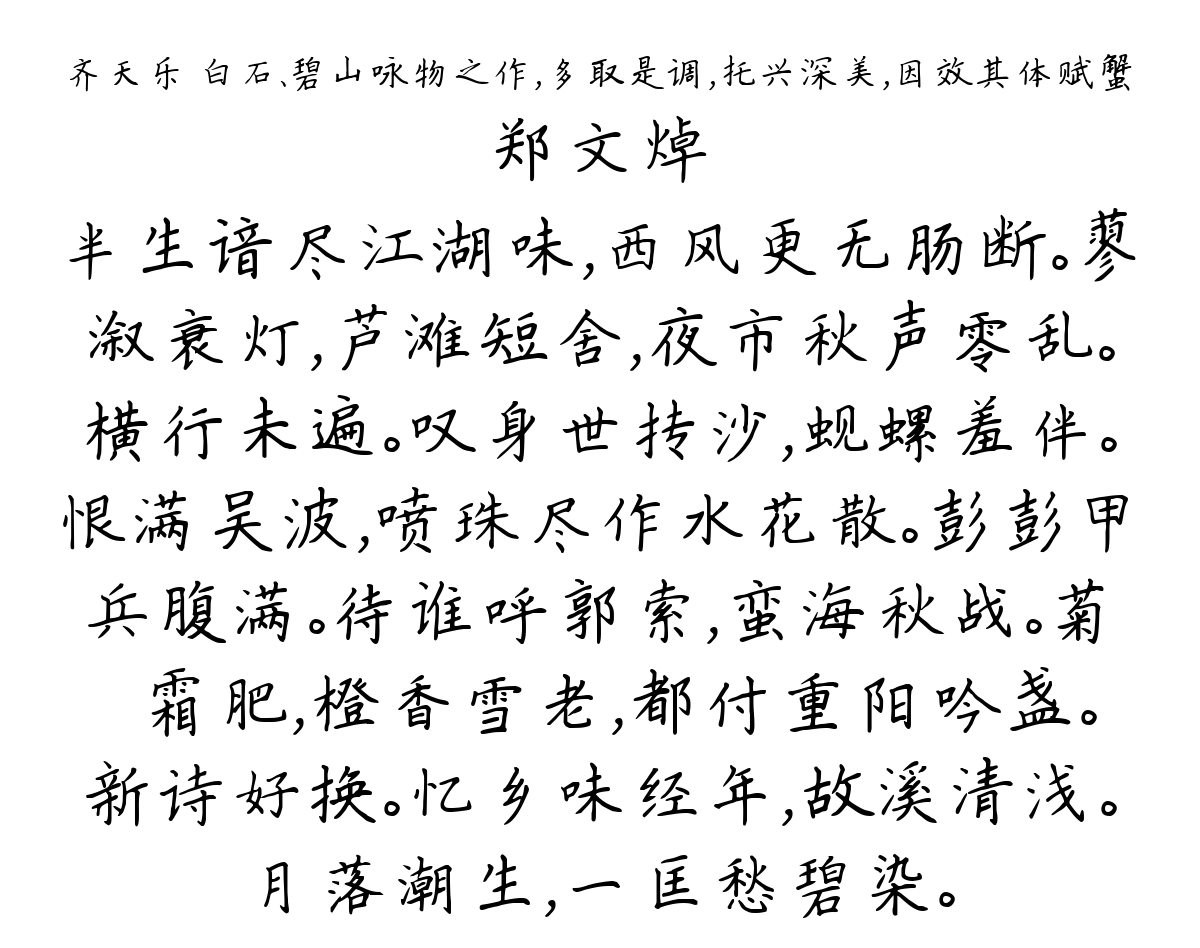 齐天乐 白石、碧山咏物之作,多取是调,托兴深美,因效其体赋蟹
郑文焯
半生谙尽江湖味,西风更无肠断。蓼
溆衰灯,芦滩短舍,夜市秋声零乱。
横行未遍。叹身世抟沙,蚬螺羞伴。
恨满吴波,喷珠尽作水花散。彭彭甲
兵腹满。待谁呼郭索,蛮海秋战。菊
霜肥,橙香雪老,都付重阳吟盏。
新诗好换。忆乡味经年,故溪清浅。
月落潮生,一匡愁碧染。